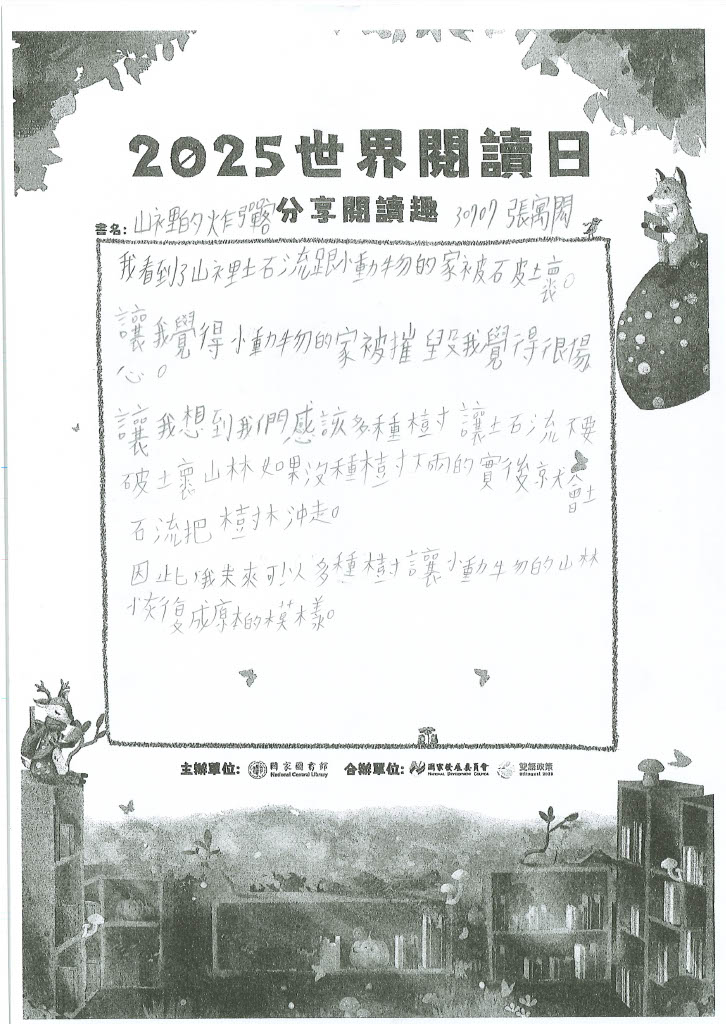 2025世界閱讀日
分享閱讀趣
書名: 山裡的炸彈客
30707 張寓閎
我看到了山裡土石流跟小動物的家被破壞。
讓我覺得小動物的家被摧毀我覺得很傷
心。
讓我想到我們應該多種樹讓土石流不要
破壞山林如果沒種樹下雨的實後就會土
石流把樹林沖走。
因此我未來可以多種樹讓小動物的山林
恢復成原本的模樣。
主辦單位: 國家圖書館 National Central Library 合辦單位: 國家發展委員會 NATIONAL DEVELOPMENT COUNCIL 雙語政策 Bilingual 2030